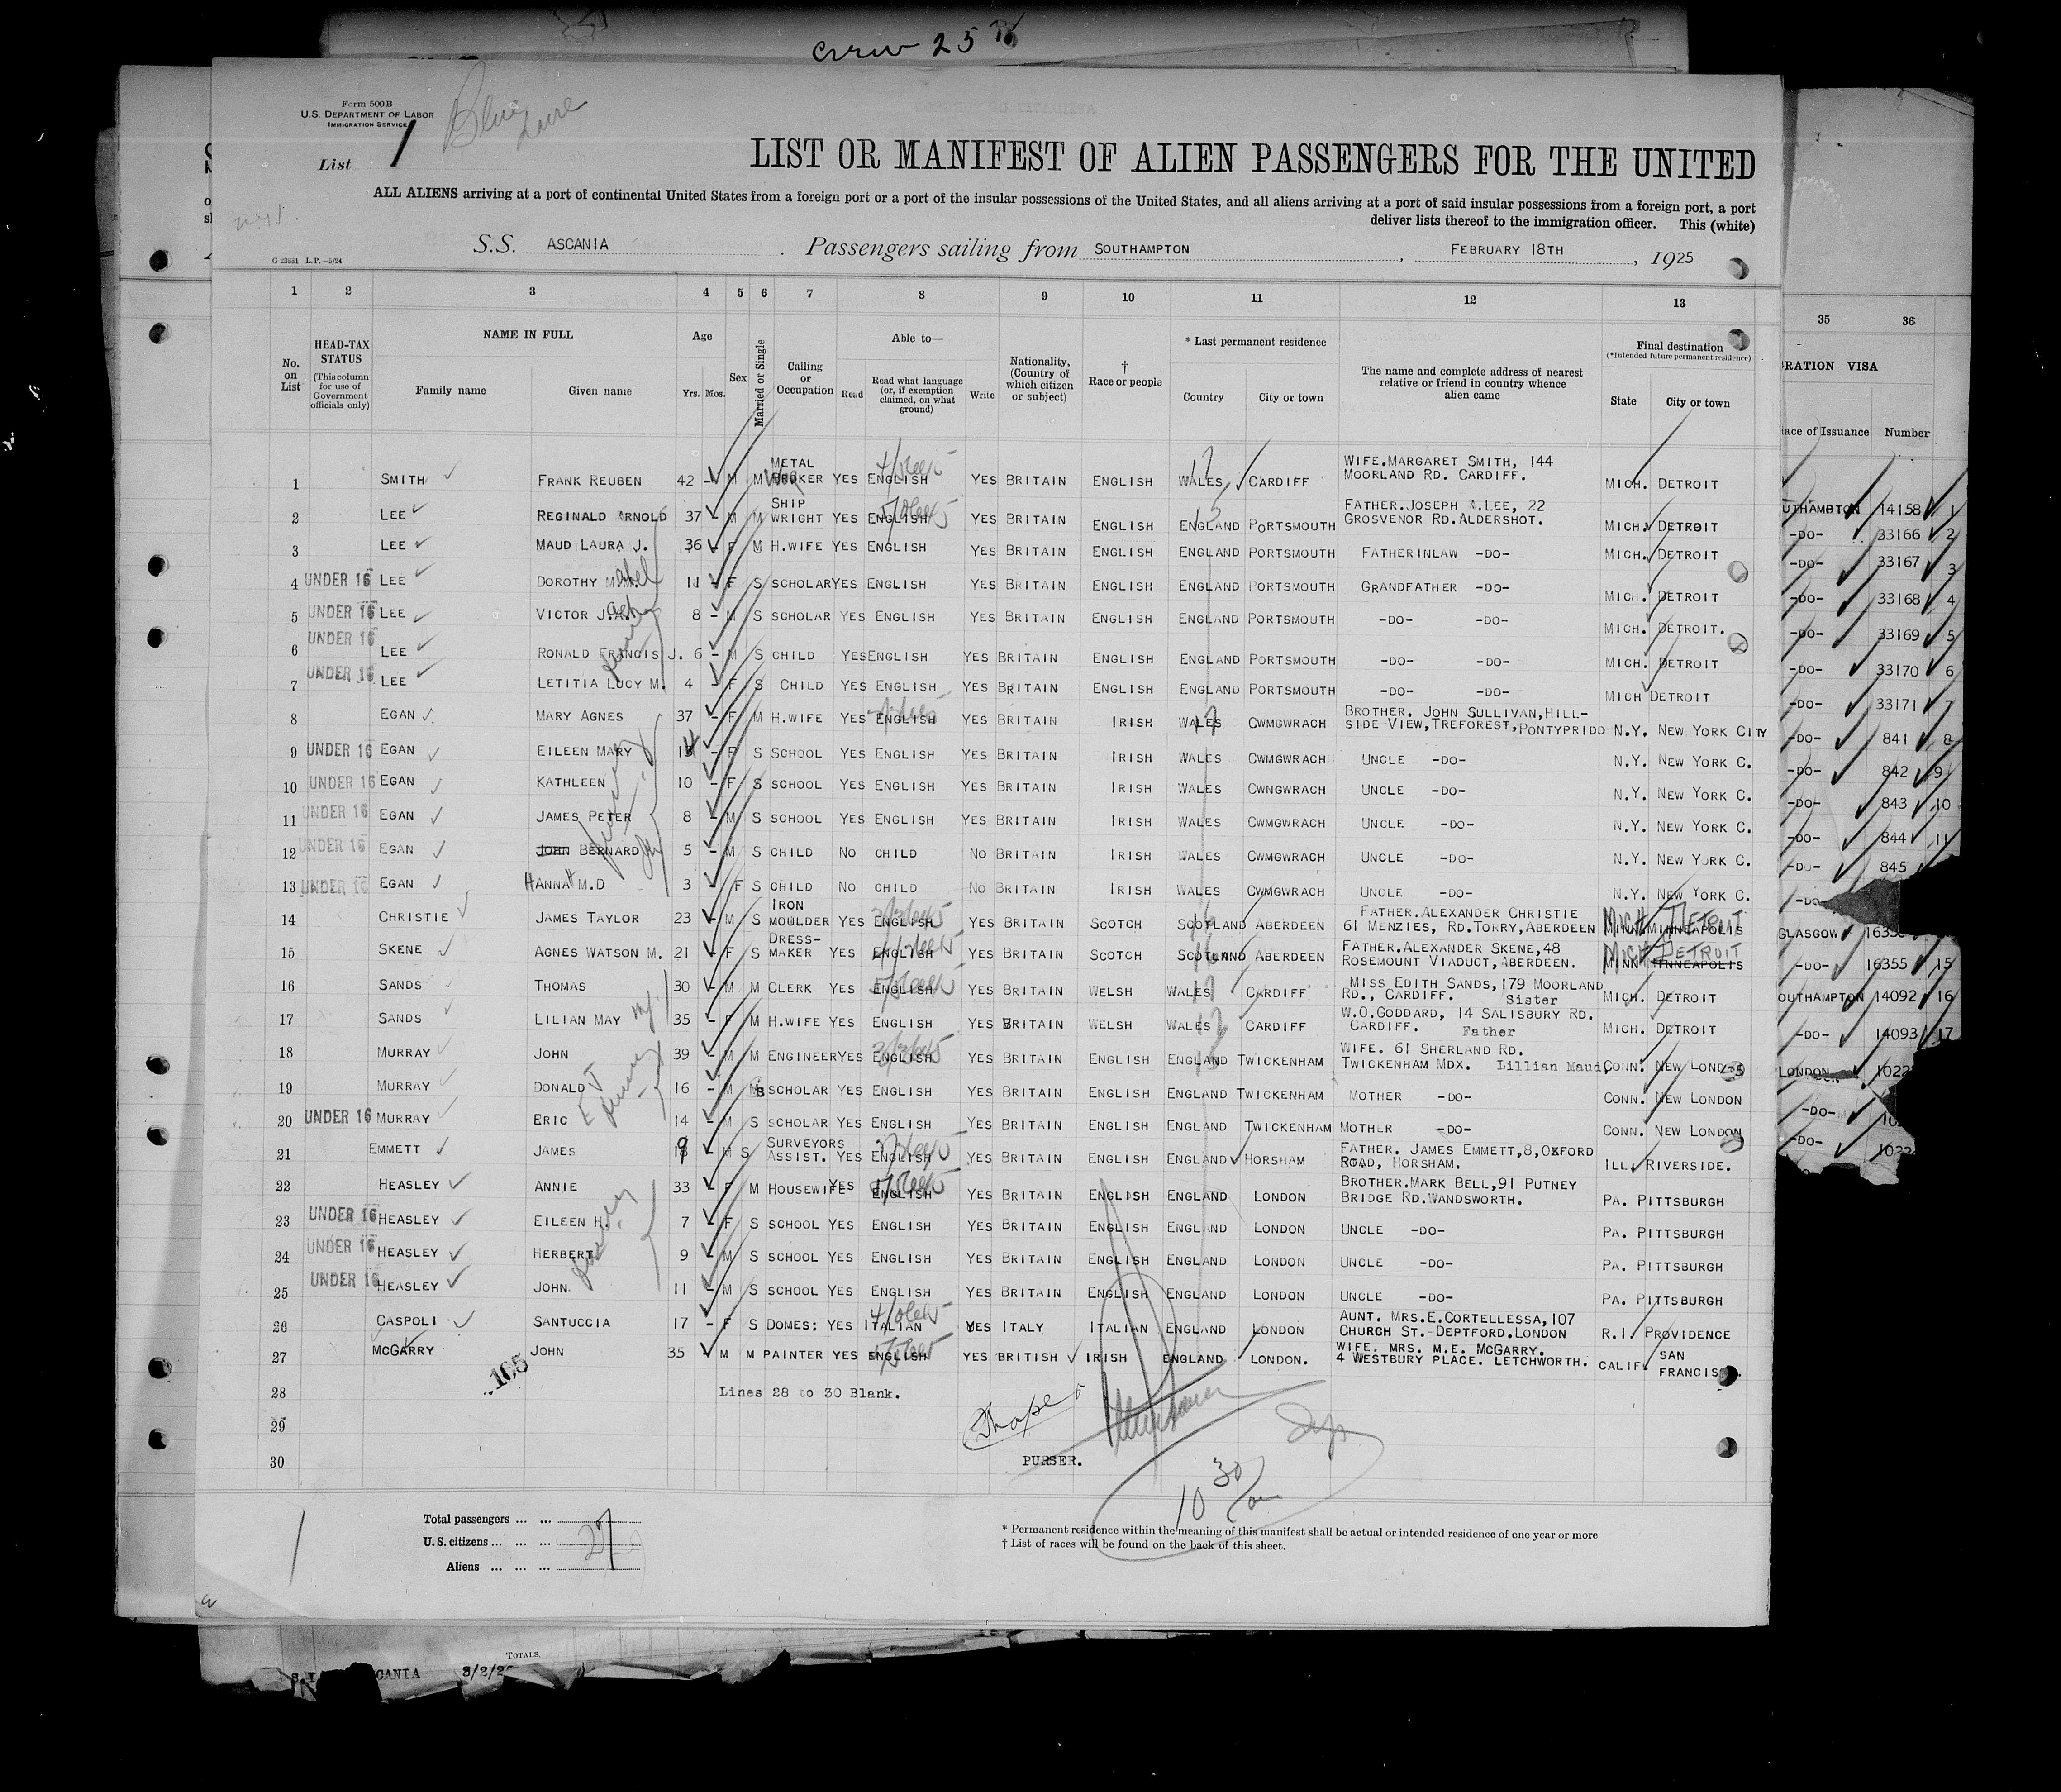 Crew 25
Form 500B
U.S. DEPARTMENT OF LABOR
IMMIGRATION SERVICE
Blue
List 1
LIST OR MANIFEST OF ALIEN PASSENGERS FOR THE UNITED
ALL ALIENS arriving at a port of continental United States from a foreign port or a port of the insular possessions of the United States, and all aliens arriving at a port of said insular possessions from a foreign port, a port
deliver lists thereof to the immigration officer. This (white)
S.S. ASCANIA Passengers sailing from SOUTHAMPTON, FEBRUARY 18TH, 1925
G 23881 L.P.-5/24
1 2 3 4 5 6 7 8 9 10 11 12 13 35 36
No. on List
HEAD-TAX STATUS (This column for use of Government officials only)
NAME IN FULL Family name Given name
Age Yrs. Mos.
Sex
Married or Single
Calling or Occupation
Able to— Read Read what language (or, if exemption claimed, on what ground) Write
Nationality, (Country of which citizen or subject)
† Race or people
* Last permanent residence Country City or town
The name and complete address of nearest relative or friend in country whence alien came
Final destination (*Intended future permanent residence) State City or town
RATION VISA
ace of Issuance Number
1 SMITH FRANK REUBEN 42 - M M METAL BROKER YES ENGLISH YES BRITAIN ENGLISH WALES CARDIFF WIFE.MARGARET SMITH, 144 MOORLAND RD. CARDIFF. MICH. DETROIT UTHAMPTON 14158 1
2 LEE REGINALD ARNOLD 37 - M M SHIP WRIGHT YES ENGLISH YES BRITAIN ENGLISH ENGLAND PORTSMOUTH FATHER.JOSEPH A.LEE, 22 GROSVENOR RD.ALDERSHOT. MICH. DETROIT -DO- 33166 2
3 LEE MAUD LAURA J. 36 - F M H.WIFE YES ENGLISH YES BRITAIN ENGLISH ENGLAND PORTSMOUTH FATHERINLAW -DO- MICH. DETROIT -DO- 33167 3
4 UNDER 16 LEE DOROTHY M. 11 - F S SCHOLAR YES ENGLISH YES BRITAIN ENGLISH ENGLAND PORTSMOUTH GRANDFATHER -DO- MICH. DETROIT -DO- 33168 4
5 UNDER 16 LEE VICTOR J.A. 8 - M S SCHOLAR YES ENGLISH YES BRITAIN ENGLISH ENGLAND PORTSMOUTH -DO- -DO- MICH. DETROIT. -DO- 33169 5
6 UNDER 16 LEE RONALD FRANCIS J. 6 - M S CHILD YES ENGLISH YES BRITAIN ENGLISH ENGLAND PORTSMOUTH -DO- -DO- MICH. DETROIT -DO- 33170 6
7 UNDER 16 LEE LETITIA LUCY M. 4 - F S CHILD YES ENGLISH YES BRITAIN ENGLISH ENGLAND PORTSMOUTH -DO- -DO- MICH DETROIT -DO- 33171 7
8 EGAN MARY AGNES 37 - F M H.WIFE YES ENGLISH YES BRITAIN IRISH WALES CWMGWRACH BROTHER. JOHN SULLIVAN,HILL-SIDE VIEW,TREFOREST,PONTYPRIDD N.Y. NEW YORK CITY -DO- 841 8
9 UNDER 16 EGAN EILEEN MARY 13 - F S SCHOOL YES ENGLISH YES BRITAIN IRISH WALES CWMGWRACH UNCLE -DO- N.Y. NEW YORK C. -DO- 842 9
10 UNDER 16 EGAN KATHLEEN 10 - F S SCHOOL YES ENGLISH YES BRITAIN IRISH WALES CWNGWRACH UNCLE -DO- N.Y. NEW YORK C. -DO- 843 10
11 UNDER 16 EGAN JAMES PETER 8 - M S SCHOOL YES ENGLISH YES BRITAIN IRISH WALES CWMGWRACH UNCLE -DO- N.Y. NEW YORK C. -DO- 844 11
12 UNDER 16 EGAN JOHN BERNARD 5 - M S CHILD NO CHILD NO BRITAIN IRISH WALES CWMGWRACH UNCLE -DO- N.Y. NEW YORK C. -DO- 845
13 UNDER 16 EGAN HANNAH M.D 3 F S CHILD NO CHILD NO BRITAIN IRISH WALES CWMGWRACH UNCLE -DO- N.Y. NEW YORK C. -DO
14 CHRISTIE JAMES TAYLOR 23 - M S IRON MOULDER YES ENGLISH YES BRITAIN SCOTCH SCOTLAND ABERDEEN FATHER.ALEXANDER CHRISTIE 61 MENZIES, RD.TORRY,ABERDEEN MICH DETROIT MINN MINNEAPOLIS GLASGOW 1635
15 SKENE AGNES WATSON M. 21 - F S DRESS-MAKER YES ENGLISH YES BRITAIN SCOTCH SCOTLAND ABERDEEN FATHER.ALEXANDER SKENE,48 ROSEMOUNT VIADUCT,ABERDEEN. MICH DETROIT MINN MINNEAPOLIS -DO- 16355 15
16 SANDS THOMAS 30 - M M CLERK YES ENGLISH YES BRITAIN WELSH WALES CARDIFF MISS EDITH SANDS,179 MOORLAND RD., CARDIFF. Sister MICH. DETROIT OUTHAMPTON 14092 16
17 SANDS LILIAN MAY 35 - F M H.WIFE YES ENGLISH YES BRITAIN WELSH WALES CARDIFF W.O.GODDARD, 14 SALISBURY RD. CARDIFF. Father MICH. DETROIT -DO- 14093 17
18 MURRAY JOHN 39 - M M ENGINEER YES ENGLISH YES BRITAIN ENGLISH ENGLAND TWICKENHAM WIFE. 61 SHERLAND RD. TWICKENHAM MDX. Lillian Maud, CONN. NEW LONDON LONDON 1022
19 MURRAY DONALD J 16 - M S SCHOLAR YES ENGLISH YES BRITAIN ENGLISH ENGLAND TWICKENHAM MOTHER -DO- CONN. NEW LONDON -DO- 10
20 UNDER 16 MURRAY ERIC E 14 - M S SCHOLAR YES ENGLISH YES BRITAIN ENGLISH ENGLAND TWICKENHAM MOTHER -DO- CONN. NEW LONDON -DO- 1022
21 EMMETT JAMES 19 - M S SURVEYORS ASSIST. YES ENGLISH YES BRITAIN ENGLISH ENGLAND HORSHAM FATHER. JAMES EMMETT,8,OXFORD ROAD, HORSHAM. ILL. RIVERSIDE.
22 HEASLEY ANNIE 33 - F M HOUSEWIFE YES ENGLISH YES BRITAIN ENGLISH ENGLAND LONDON BROTHER.MARK BELL,91 PUTNEY BRIDGE RD.WANDSWORTH. PA. PITTSBURGH
23 UNDER 16 HEASLEY EILEEN H. 7 - F S SCHOOL YES ENGLISH YES BRITAIN ENGLISH ENGLAND LONDON UNCLE -DO- PA. PITTSBURGH
24 UNDER 16 HEASLEY HERBERT 9 - M S SCHOOL YES ENGLISH YES BRITAIN ENGLISH ENGLAND LONDON UNCLE -DO- PA. PITTSBURGH
25 UNDER 16 HEASLEY JOHN. 11 - M S SCHOOL YES ENGLISH YES BRITAIN ENGLISH ENGLAND LONDON UNCLE -DO- PA. PITTSBURGH
26 CASPOLI SANTUCCIA 17 - F S DOMES: YES ITALIAN YES ITALY ITALIAN ENGLAND LONDON AUNT. MRS.E.CORTELLESSA,107 CHURCH ST.-DEPTFORD.LONDON R.I. PROVIDENCE
27 MCGARRY JOHN 35 - M M PAINTER YES ENGLISH YES BRITISH IRISH ENGLAND LONDON. WIFE. MRS. M.E. MCGARRY. 4 WESTBURY PLACE. LETCHWORTH. CALIF. SAN FRANCIS
165
28 Lines 28 to 30 Blank.
29
30 PURSER.
10 30 am
Total passengers ... ...
U.S. citizens ... ... ... 27
Aliens ... ... ...
* Permanent residence within the meaning of this manifest shall be actual or intended residence of one year or more
† List of races will be found on the back of this sheet.
TOTALS.
CANIA 3/2/2